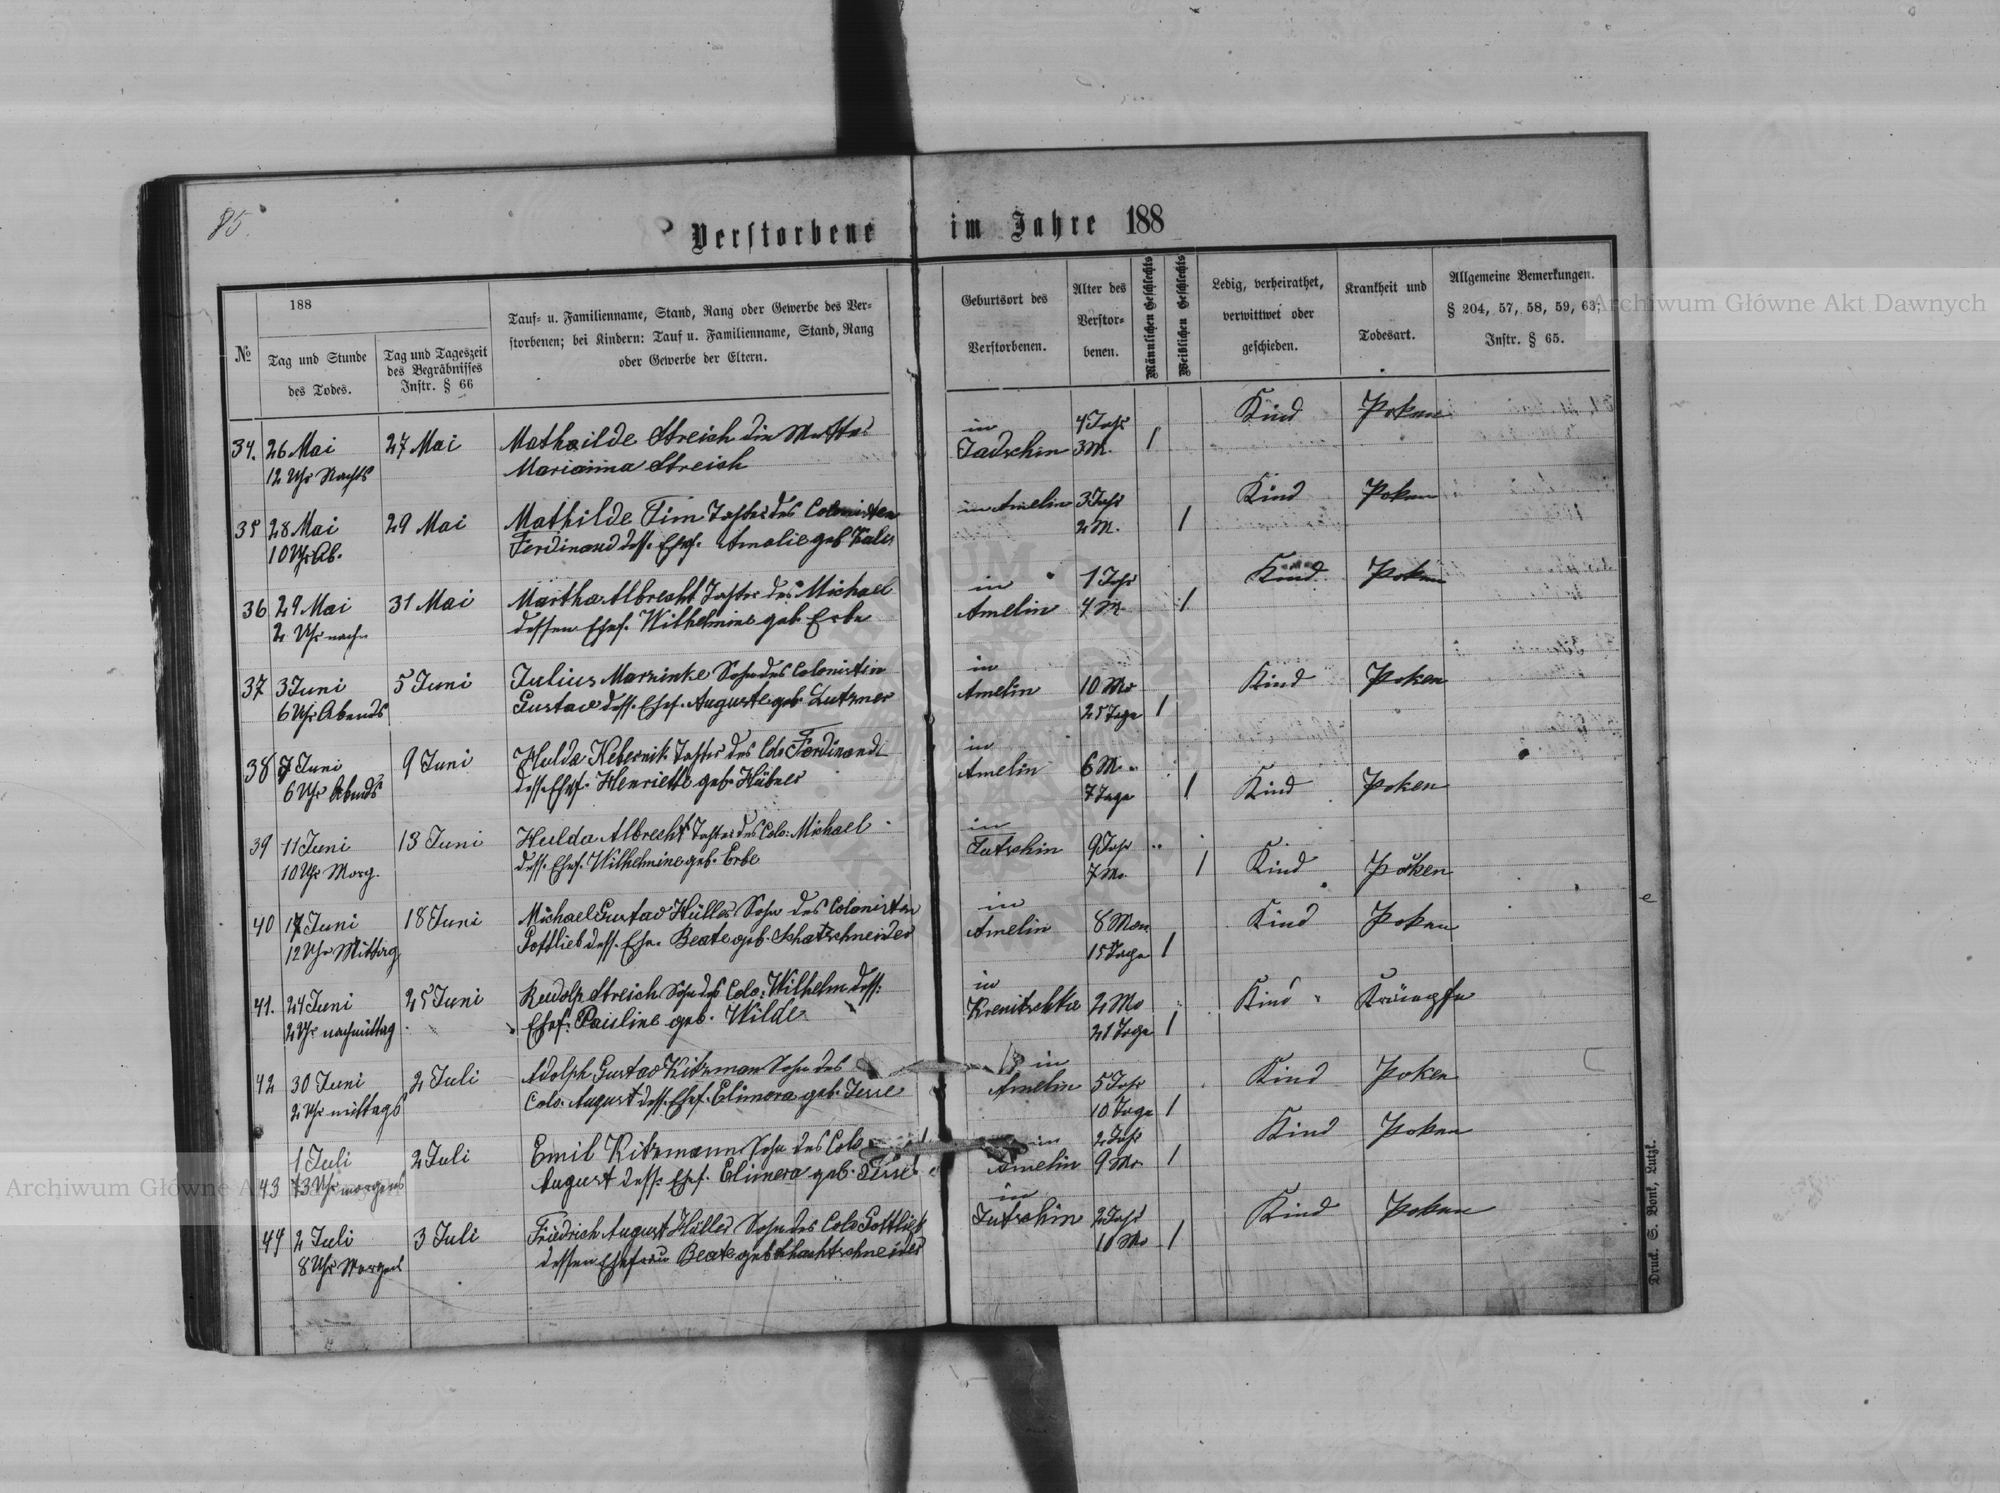 85.
Verstorbene im Jahre 188
№
188
Tag und Stunde
des Todes.
Tag und Tageszeit
des Begräbnisses
Instr. § 66
Tauf- u. Familienname, Stand, Rang oder Gewerbe des Ver-
storbenen; bei Kindern: Tauf u. Familienname, Stand, Rang
oder Gewerbe der Eltern.
Geburtsort des
Verstorbenen.
Alter des
Verstor-
benen.
Männlichen Geschlechts
Weiblichen Geschlechts
Ledig, verheirathet,
verwittwet oder
geschieden.
Krankheit und
Todesart.
Allgemeine Bemerkungen.
§ 204, 57, 58, 59, 63;
Instr. § 65.
34. 26 Mai 27 Mai Mathailde Streich die Mutter in 4 Jahr Kind Poken
12 Uhr Nachts Marianna Streich Jadschin 3 M. 1
35 28 Mai 29 Mai Mathilde Tim Tochter des Colonisten in Amelin 3 Jahr Kind Poken
10 Uhr Ab. Ferdinand dess. Ehef. Amalie geb 2 M. 1
36 29 Mai 31 Mai Martha Albrecht Tochter des Michael in 1 Jahr Kind Poken
2 Uhr nachm dessen Ehef. Wilhelmine geb. Erbe Amelin 4 M 1
37 3 Juni 5 Juni Julius Marzinke Sohn des Colonisten in Amelin 10 Mo Kind Poken
6 Uhr Abends Gustav dess. Ehef. Auguste geb. Lutzner 25 Tage 1
38 7 Juni 9 Juni Hulda Nebernik Tochter des Colo Ferdinand in Amelin 6 M.
6 Uhr Abends dess. Ehef. Henriette geb. Hübner 7 Tage 1 Kind Poken
39 11 Juni 13 Juni Hulda Albrecht Tochter des Colo: Michael in Jutschin 9 Jahr
10 Uhr Morg. dess. Ehef. Wilhelmine geb. Erbe 7 Mo. 1 Kind Poken
40 17 Juni 18 Juni Michael Gustav Hüller Sohn des Colonisten in Amelin 8 Mon Kind Poken
12 Uhr Mittag Gottlieb dess. Ehe. Beate geb. Schatschneider 15 Tage 1
41. 24 Juni 25 Juni Rudolp Streich Sohn des Colo: Wilhelm dess: in 2 Mo Kind Krämpfe
2 Uhr nachmittag Ehef. Pauline geb. Wilde 21 Tage 1
42 30 Juni 2 Juli Adolph Gustav Kitzman Sohn des in Amelin 5 Jahr Kind Poken
2 Uhr mittags Colo. August dess. Ehef. Elinora geb. Jesse 10 Tage 1
1 Juli 2 Juli Emil Kitzmann Sohn des Colo in 2 Jahr Kind Poken
43 Uhr morgens August dess. Ehef. Elinora geb. Jesse Amelin 9 Mo. 1
44 2 Juli 3 Juli Friedrich August Hüller Sohn des Colo Gottlieb in Jutschin 2 Jahr Kind Poken
8 Uhr Morgens dessen Ehefrau Beate geb Schachtschneider 10 Mo 1
Druck. S. Bonk, Lutzk.
Archiwum Główne Akt Dawnych
Archiwum Główne